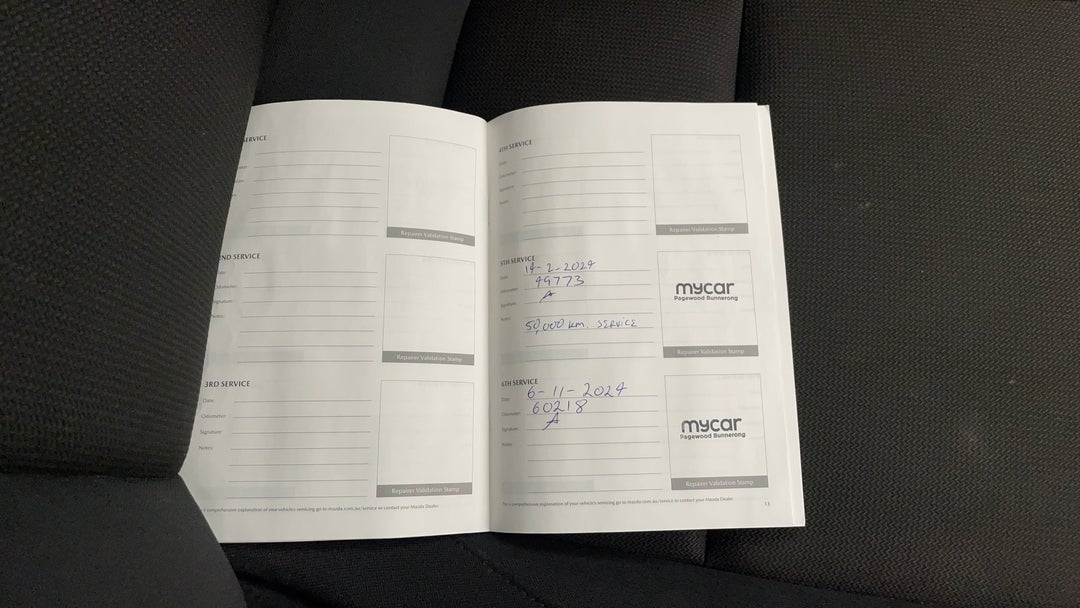 SERVICE
Repairer Validation Stamp
2ND SERVICE
Odometer:
Signature:
Notes:
Repairer Validation Stamp
3RD SERVICE
Date:
Odometer:
Signature:
Notes:
Repairer Validation Stamp
comprehensive explanation of your vehicle's servicing go to mazda.com.au/service or contact your Mazda Dealer.
4TH SERVICE
Date:
Odometer:
Signature:
Notes:
Repairer Validation Stamp
5TH SERVICE
Date: 14-2-2024
Odometer: 49773
Signature: A
Notes:
50,000 km. SERVICE
mycar
Pagewood Bunnerong
Repairer Validation Stamp
6TH SERVICE
Date: 6-11-2024
Odometer: 60218
Signature: A
Notes:
mycar
Pagewood Bunnerong
Repairer Validation Stamp
For a comprehensive explanation of your vehicle's servicing go to mazda.com.au/service or contact your Mazda Dealer.
13